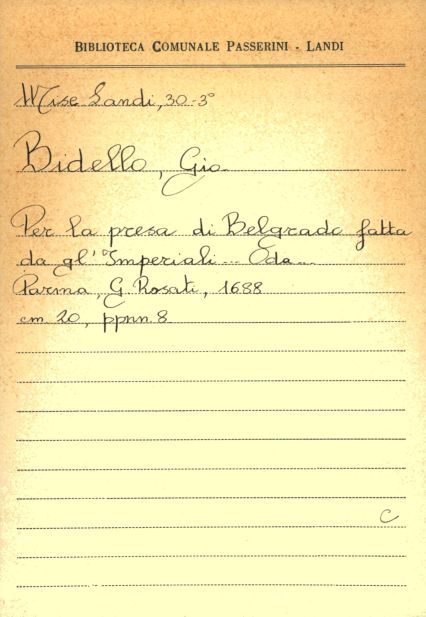 BIBLIOTECA COMUNALE PASSERINI - LANDI
Mise Landi, 30-3°
Bidello, Gio.
Per la presa di Belgrado fatta
da gl'Imperiali... Oda...
Parma, G. Rosati, 1688
cm 20, ppnn. 8
C